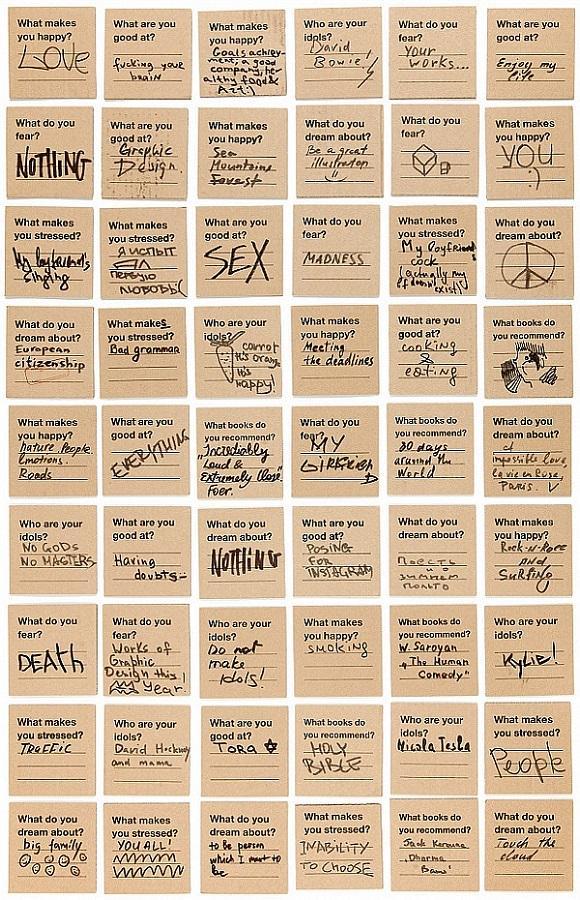 What makes
you happy?
LOVE
What are you
good at?
fucking your
brain
What makes
you happy?
Goals achiev-
ment, a good
company, he-
althy food &
Art :)
Who are your
idols?
David
Bowie!
What do you
fear?
Your
works...
What are you
good at?
Enjoy my
life
What do you
fear?
NOTHING
What are you
good at?
Graphic
Design
What makes
you happy?
Sea
Mountains
Forest
What do you
dream about?
Be a great
illustrator
What do you
fear?
What makes
you happy?
YOU
:)
What makes
you stressed?
My boyfriend's
singing
What makes
you stressed?
Я ИСПЫТ
первую
любовь(
What are you
good at?
SEX
What do you
fear?
MADNESS
What makes
you stressed?
My boyfriend's
cock
(actually my
b.f. doesn't
exist)
What do you
dream about?
What do you
dream about?
European
citizenship
What makes
you stressed?
Bad grammar
Who are your
idols?
carrot
it's orange
it's
happy!
What makes
you happy?
Meeting
the deadlines
What are you
good at?
cooking
&
eating
What books do
you recommend?
What makes
you happy?
nature. People
Emotions.
Roads
What are you
good at?
EVERYTHING
What books do
you recommend?
"Incredibly
Loud &
Extremely Close"
Foer.
What do you
fear?
MY
GIRLFRIEND
What books do
you recommend?
80 days
around the
World
What do you
dream about?
impossible love,
la vie en Rose,
Paris.
Who are your
idols?
NO GODS
NO MASTERS
What are you
good at?
Having
doubts
What do you
dream about?
NOTHING
What are you
good at?
POSING
FOR
INSTAGRAM
What do you
dream about?
Поесть
в зимнем
пальто
What makes
you happy?
Rock-n-Rope
AND
SURFING
What do you
fear?
DEATH
What do you
fear?
Works of
Graphic
Design this
year.
Who are your
idols?
Do not
make
idols!
What makes
you happy?
SMOKING
What books do
you recommend?
W. Saroyan
"The Human
Comedy"
Who are your
idols?
Kylie!
What makes
you stressed?
TRAFFIC
Who are your
idols?
David Hockney
and mama
What are you
good at?
TORA
What books do
you recommend?
HOLY
BIBLE
Who are your
idols?
Nicola Tesla
What makes
you stressed?
People
What do you
dream about?
big family
What makes
you stressed?
YOU ALL!
What do you
dream about?
to be person
which I want to
be
What makes
you stressed?
INABILITY
TO CHOOSE
What books do
you recommend?
Jack Kerouac
"Dharma
Bums"
What do you
dream about?
Touch the
cloud